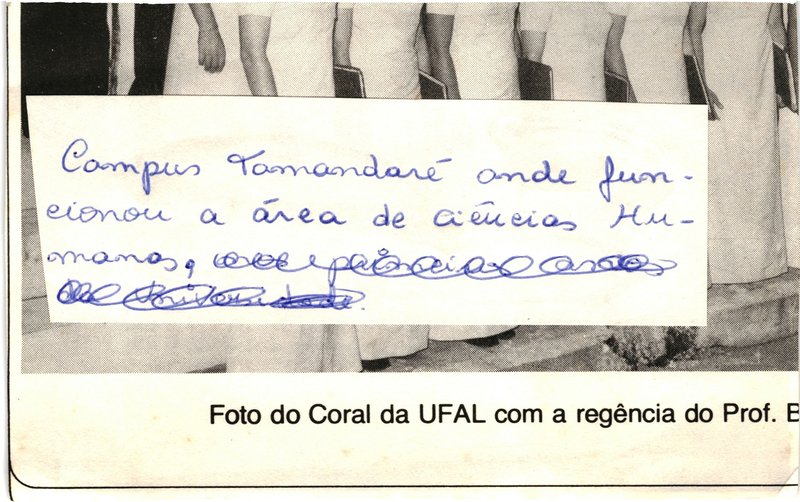 Campus Tamandaré onde fun-
cionou a área de ciências Hu-
manas,
Foto do Coral da UFAL com a regência do Prof. B